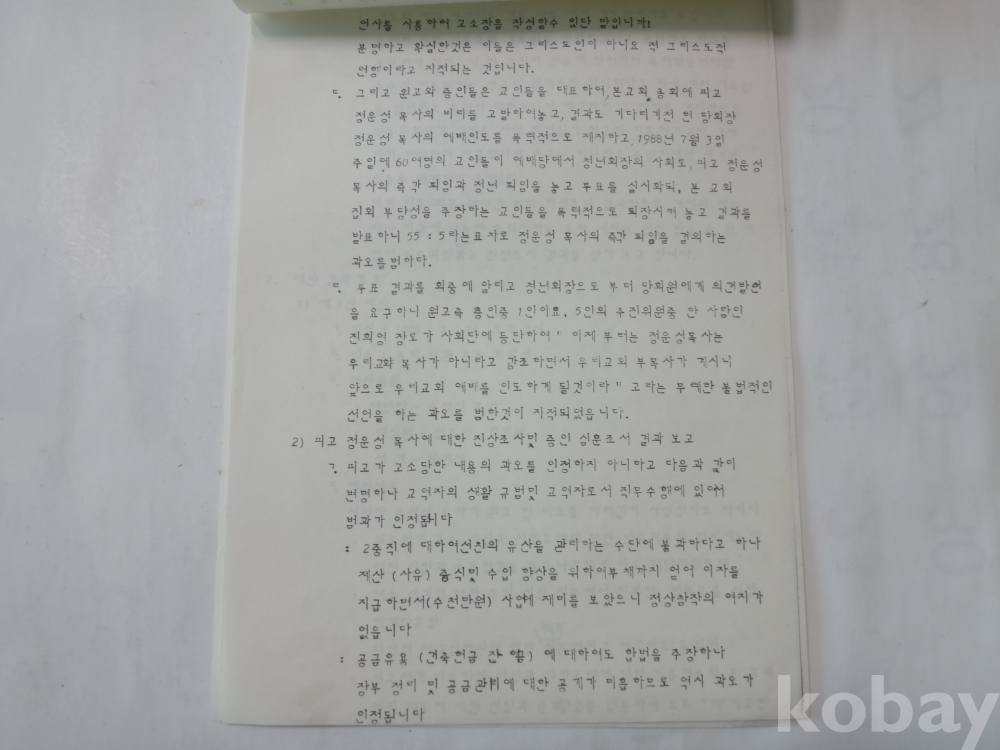 언사를 사용하여 고소장을 작성할수 있단 말입니까!
분명하고 확실한것은 이들은 그리스도인이 아니요 적 그리스도적
언행이라고 지적되는 것입니다.
ㄷ. 그리고 원고와 증인들은 교인들을 대표하여, 본교회 총회에 피고
정운성 목사의 비리를 고발하여놓고, 결과도 기다리기전 현 당회장
정운성 목사의 예배인도를 폭력적으로 제지하고, 1988년 7월 3일
주일에 60여명의 교인들이 예배당에서 청년회장의 사회로, 피고 정운성
목사의 즉각 퇴임과 정년 퇴임을 놓고 투표를 실시하되, 본 교회
집회 부당성을 주장하는 교인들을 폭력적으로 퇴장시켜 놓고 결과를
발표하니 55 : 5라는표차로 정운성 목사의 즉각 퇴임을 결의하는
과오를범하다.
ㄹ. 투표 결과를 회중에 알리고 청년회장으로 부터 당회원에게 의견발언
을 요구하니 원고측 증인중 1인이요. 5인의 추진위원중 한 사람인
진희영 장로가 사회단에 등단하여 " 이제 부터는 정운성목사는
우리교회 목사가 아니라고 강조하면서 우리교회 부목사가 계시니
앞으로 우리교회 예배를 인도하게 될것이라 " 고하는 무례한 불법적인
선언을 하는 과오를 범한것이 지적되었읍니다.
2) 피고 정운성 목사에 대한 진상조사및 증인 심문조서 결과 보고
ㄱ. 피고가 고소당한 내용의 과오를 인정하지 아니하고 다음과 같이
변명하나 교역자의 생활 규범및 교역자로서 직무수행에 있어서
범과가 인정됩니다
: 2중직에 대하여선친의 유산을 관리하는 수단에 불과하다고 하나
재산 (사유) 증식및 수입 향상을 위하여부채까지 얻어 이자를
지급하면서(수천만원) 사업에 재미를 보았으니 정상참작의 여지가
없읍니다
: 공금유용 (건축헌금 잔액) 에 대하여도 합법을 주장하나
장부 정리 및 공금관리에 대한 공개가 미흡하므로 역시 과오가
인정됩니다
kobay